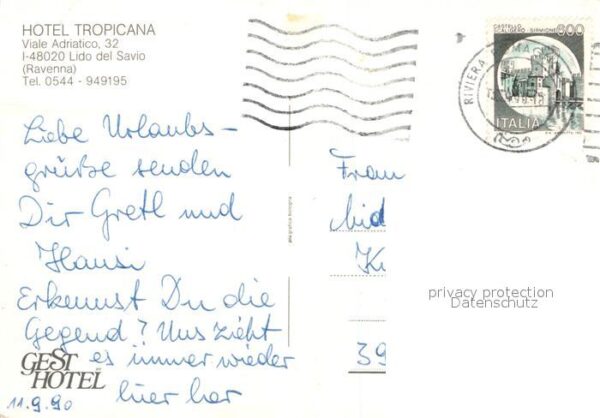 HOTEL TROPICANA
Viale Adriatico, 32
I-48020 Lido del Savio
(Ravenna)
Tel. 0544 - 949195
Liebe Urlaubs-
grüße senden
Dir Gretl und
Hansi
Erkennst Du die
Gegend? Uns zieht
es immer wieder
hier her
11.9.90
GEST
HOTEL
CASTELLO
SCALIGERO - SIRMIONE
600
ITALIA
RIVIERA
Frau
39
privacy protection
Datenschutz